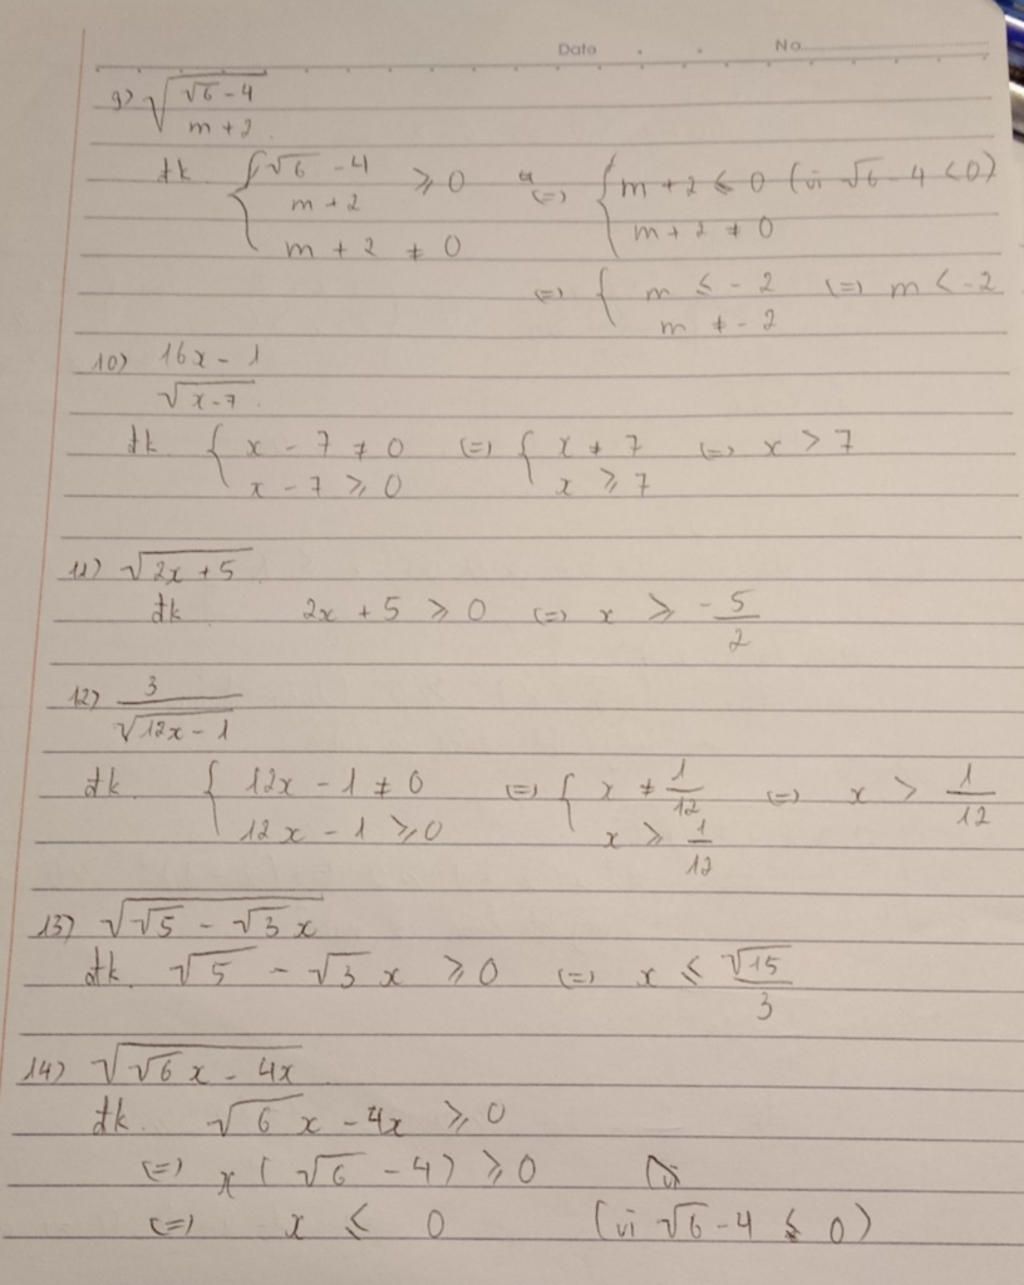 Date . . No.
9) √((√6 - 4)/(m + 2))
đk { (√6 - 4)/(m + 2) ≥ 0 (=) { m + 2 ≤ 0 (vì √6 - 4 < 0)
m + 2 ≠ 0 m + 2 ≠ 0
(=) { m ≤ -2 (=) m < -2
m ≠ -2
10) (16x - 1)/√(x - 7)
đk { x - 7 ≠ 0 (=) { x ≠ 7 (=) x > 7
x - 7 ≥ 0 x ≥ 7
11) √(2x + 5)
đk 2x + 5 ≥ 0 (=) x ≥ -5/2
12) 3/√(12x - 1)
đk { 12x - 1 ≠ 0 (=) { x ≠ 1/12 (=) x > 1/12
12x - 1 ≥ 0 x ≥ 1/12
13) √(√5 - √3 x)
đk √5 - √3 x ≥ 0 (=) x ≤ √15/3
14) √(√6 x - 4x)
đk √6 x - 4x ≥ 0
(=) x (√6 - 4) ≥ 0
(=) x ≤ 0 (vì √6 - 4 < 0)